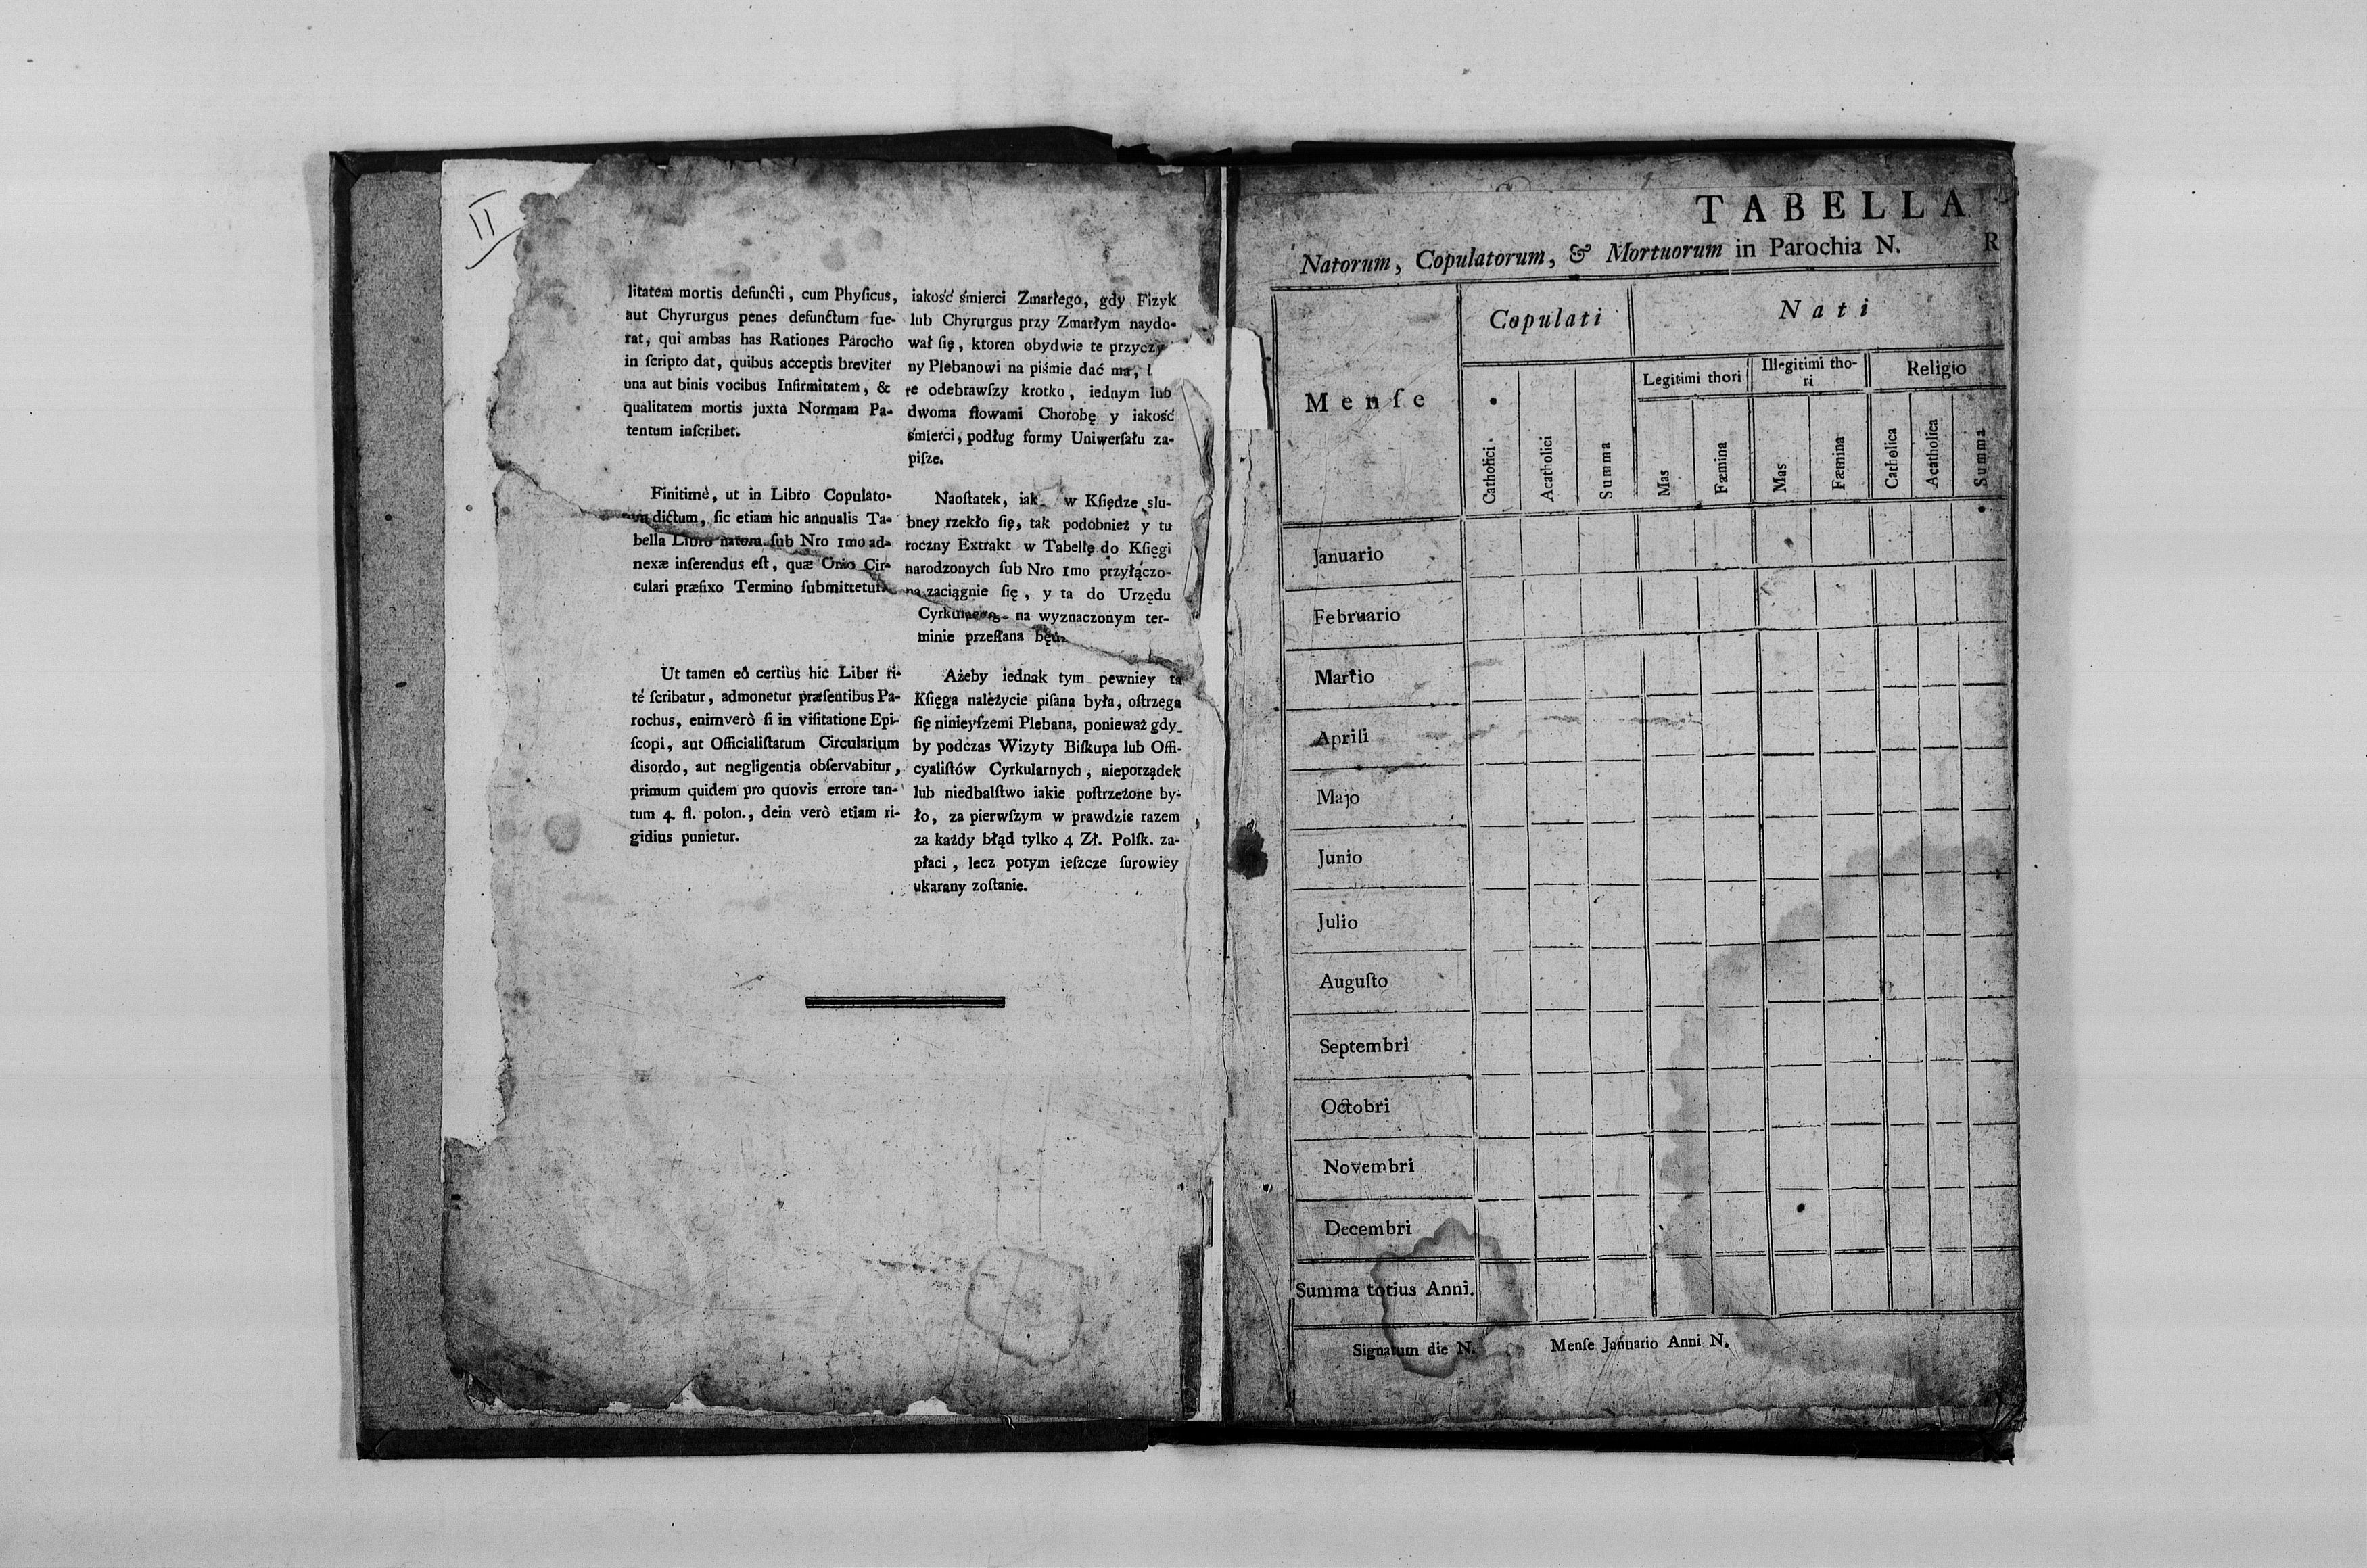 II
litatem mortis defuncti, cum Phyſicus,
aut Chyrurgus penes defunctum fue-
rat, qui ambas has Rationes Parocho
in ſcripto dat, quibus acceptis breviter
una aut binis vocibus Infirmitatem, &
qualitatem mortis juxta Normam Pa-
tentum inſcribet.
Finitimè, ut in Libro Copulato-
dictum, ſic etiam hic annualis Ta-
bella Libro natorū ſub Nro 1mo ad-
nexæ inſerendus eſt, quæ Offi͠o Cir-
culari præfixo Termino ſubmittetur.
Ut tamen eô certiùs hic Liber ri-
té ſcribatur, admonetur præſentibus Pa-
rochus, enimverò ſi in viſitatione Epi-
ſcopi, aut Officialiſtarum Circularium
disordo, aut negligentia obſervabitur,
primum quidem pro quovis errore tan-
tum 4. fl. polon., dein verò etiam ri-
gidius punietur.
iakość śmierci Zmarłego, gdy Fizyk
lub Chyrurgus przy Zmarłym naydo-
wał ſię, ktoren obydwie te przyczy
ny Plebanowi na piśmie dać ma,
re odebrawſzy krotko, iednym lub
dwoma ſłowami Chorobę y iakość
śmierci, podług formy Uniwerſału za-
piſze.
Naoſtatek, iak w Kſiędze slu-
bney rzekło ſię, tak podobnież y tu
roczny Extrakt w Tabellę do Kſięgi
narodzonych ſub Nro 1mo przyłączo-
na zaciągnie ſię, y ta do Urzędu
na wyznaczonym ter-
minie przeſłana
Ażeby iednak tym pewniey ta
Kſięga należycie piſana była, oſtrzega
ſię ninieyſzemi Plebana, ponieważ gdy-
by podczas Wizyty Biſkupa lub Offi-
cyaliſtów Cyrkularnych, nieporządek
lub niedbalſtwo iakie poſtrzeżone by-
ło, za pierwſzym w prawdzie razem
za każdy błąd tylko 4 Zł. Polſk. za-
płaci, lecz potym ieſzcze ſurowiey
ukarany zoſtanie.
TABELLA
Natorum, Copulatorum, & Mortuorum in Parochia N. R
Menſe
Copulati
Nati
Legitimi thori
Illegitimi tho-
ri
Religio
Catholici
Acatholici
Summa
Mas
Fæmina
Mas
Fæmina
Catholica
Acatholica
Summa
Januario
Februario
Martio
Aprili
Majo
Junio
Julio
Auguſto
Septembri
Octobri
Novembri
Decembri
Summa totius Anni.
Signatum die N. Menſe Januario Anni N.